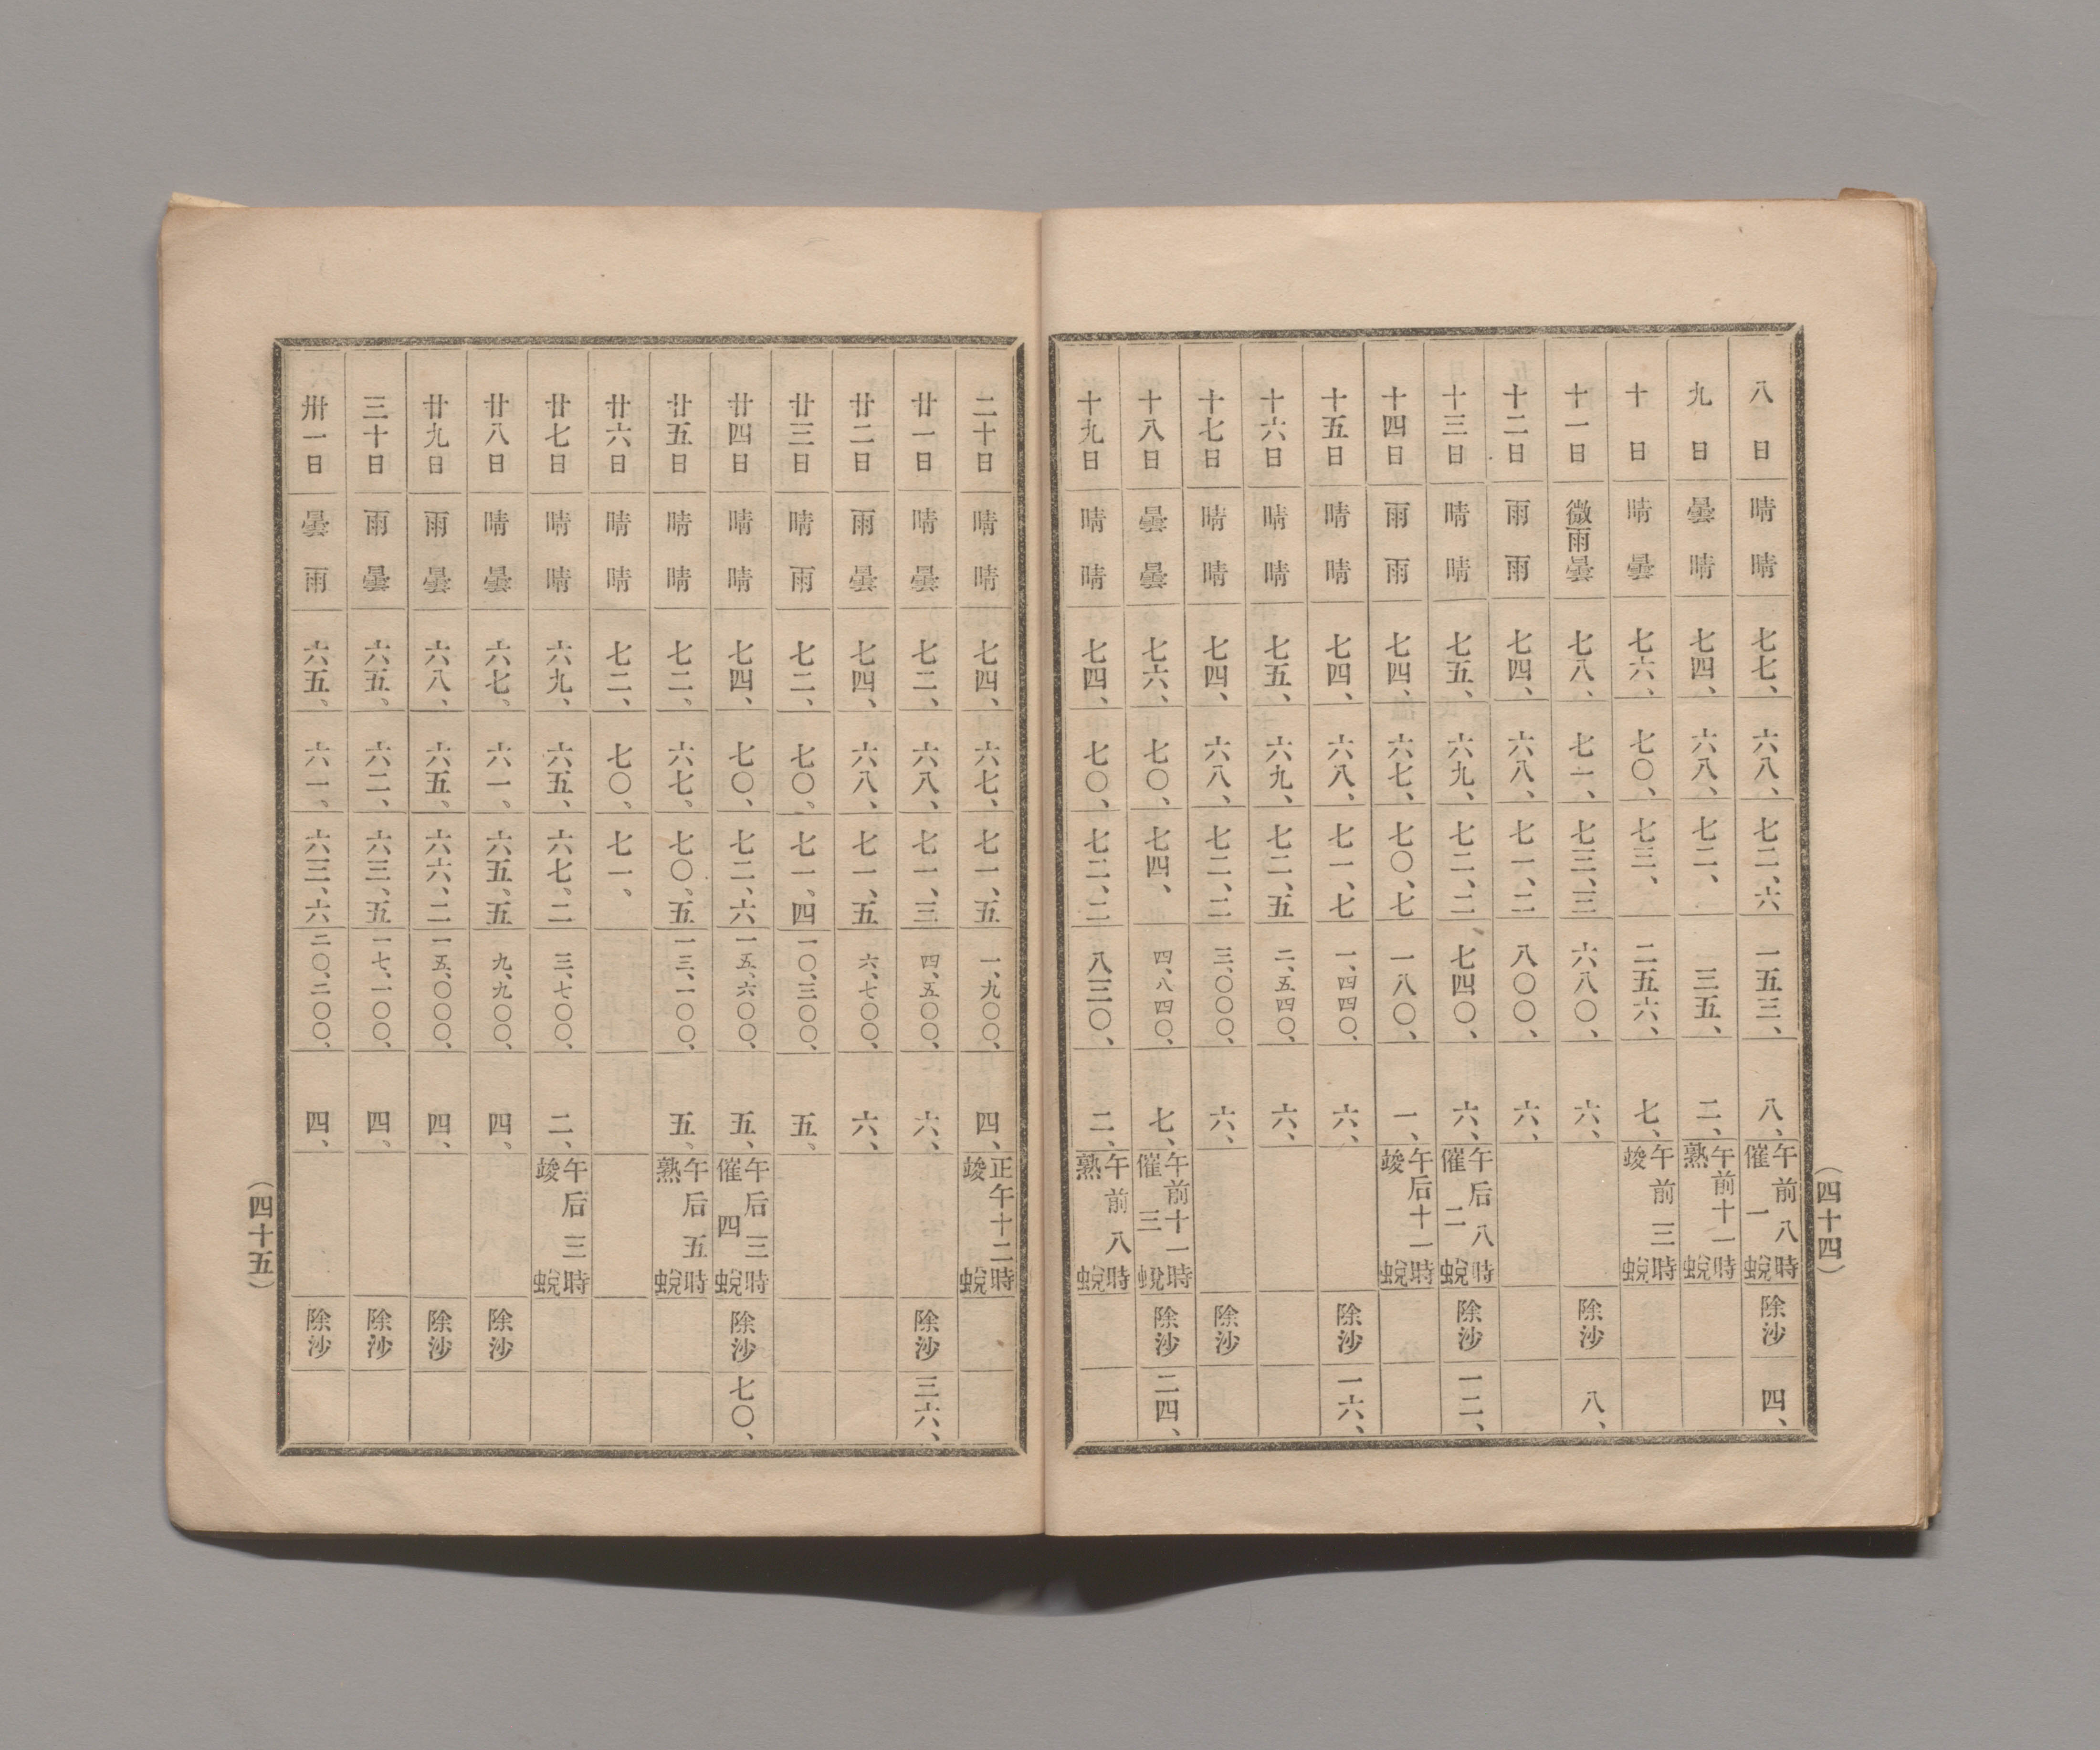 八日 晴 晴 七七、 六八、 七二、六 一五三、 八、 午前八時催一蛻 除沙 四、
九日 曇 晴 七四、 六八、 七二、 三五、 二、 午前十一時熟蛻
十日 晴 曇 七六、 七〇、 七三、 二五六、 七、 午前三時竣蛻
十一日 微雨曇 七八、 七一、 七三、三 六八〇、 六、 除沙 八、
十二日 雨 雨 七四、 六八、 七一、二 八〇〇、 六、
十三日 晴 晴 七五、 六九、 七二、二 七四〇、 六、 午后八時催二蛻 除沙 一二、
十四日 雨 雨 七四、 六七、 七〇、七 一八〇、 一、 午后十一時竣蛻
十五日 晴 晴 七四、 六八、 七一、七 一、四四〇、 六、 除沙 一六、
十六日 晴 晴 七五、 六九、 七二、五 二、五四〇、 六、
十七日 晴 晴 七四、 六八、 七二、二 三、〇〇〇、 六、 除沙
十八日 曇 曇 七六、 七〇、 七四、 四、八四〇、 七、 午前十一時催三蛻 除沙 二四、
十九日 晴 晴 七四、 七〇、 七二、二 八三〇、 二、 午前八時熟蛻
（四十四）
二十日 晴 晴 七四、 六七、 七一、五 一、九〇〇、 四、 正午十二時竣蛻
廿一日 晴 曇 七二、 六八、 七一、三 四、五〇〇、 六、 除沙 三六、
廿二日 雨 曇 七四、 六八、 七一、五 六、七〇〇、 六、
廿三日 晴 雨 七二、 七〇、 七一、四 一〇、三〇〇、 五、
廿四日 晴 晴 七四、 七〇、 七二、六 一五、六〇〇、 五、 午后三時催四蛻 除沙 七〇、
廿五日 晴 晴 七二、 六七、 七〇、五 一三、一〇〇、 五、 午后五時熟蛻
廿六日 晴 晴 七二、 七〇、 七一、
廿七日 晴 晴 六九、 六五、 六七、二 三、七〇〇、 二、 午后三時竣蛻
廿八日 晴 曇 六七、 六一、 六五、五 九、九〇〇、 四、 除沙
廿九日 雨 曇 六八、 六五、 六六、二 一五、〇〇〇、 四、 除沙
三十日 雨 曇 六五、 六二、 六三、五 一七、一〇〇、 四、 除沙
卅一日 曇 雨 六五、 六一、 六三、六 二〇、二〇〇、 四、 除沙
（四十五）